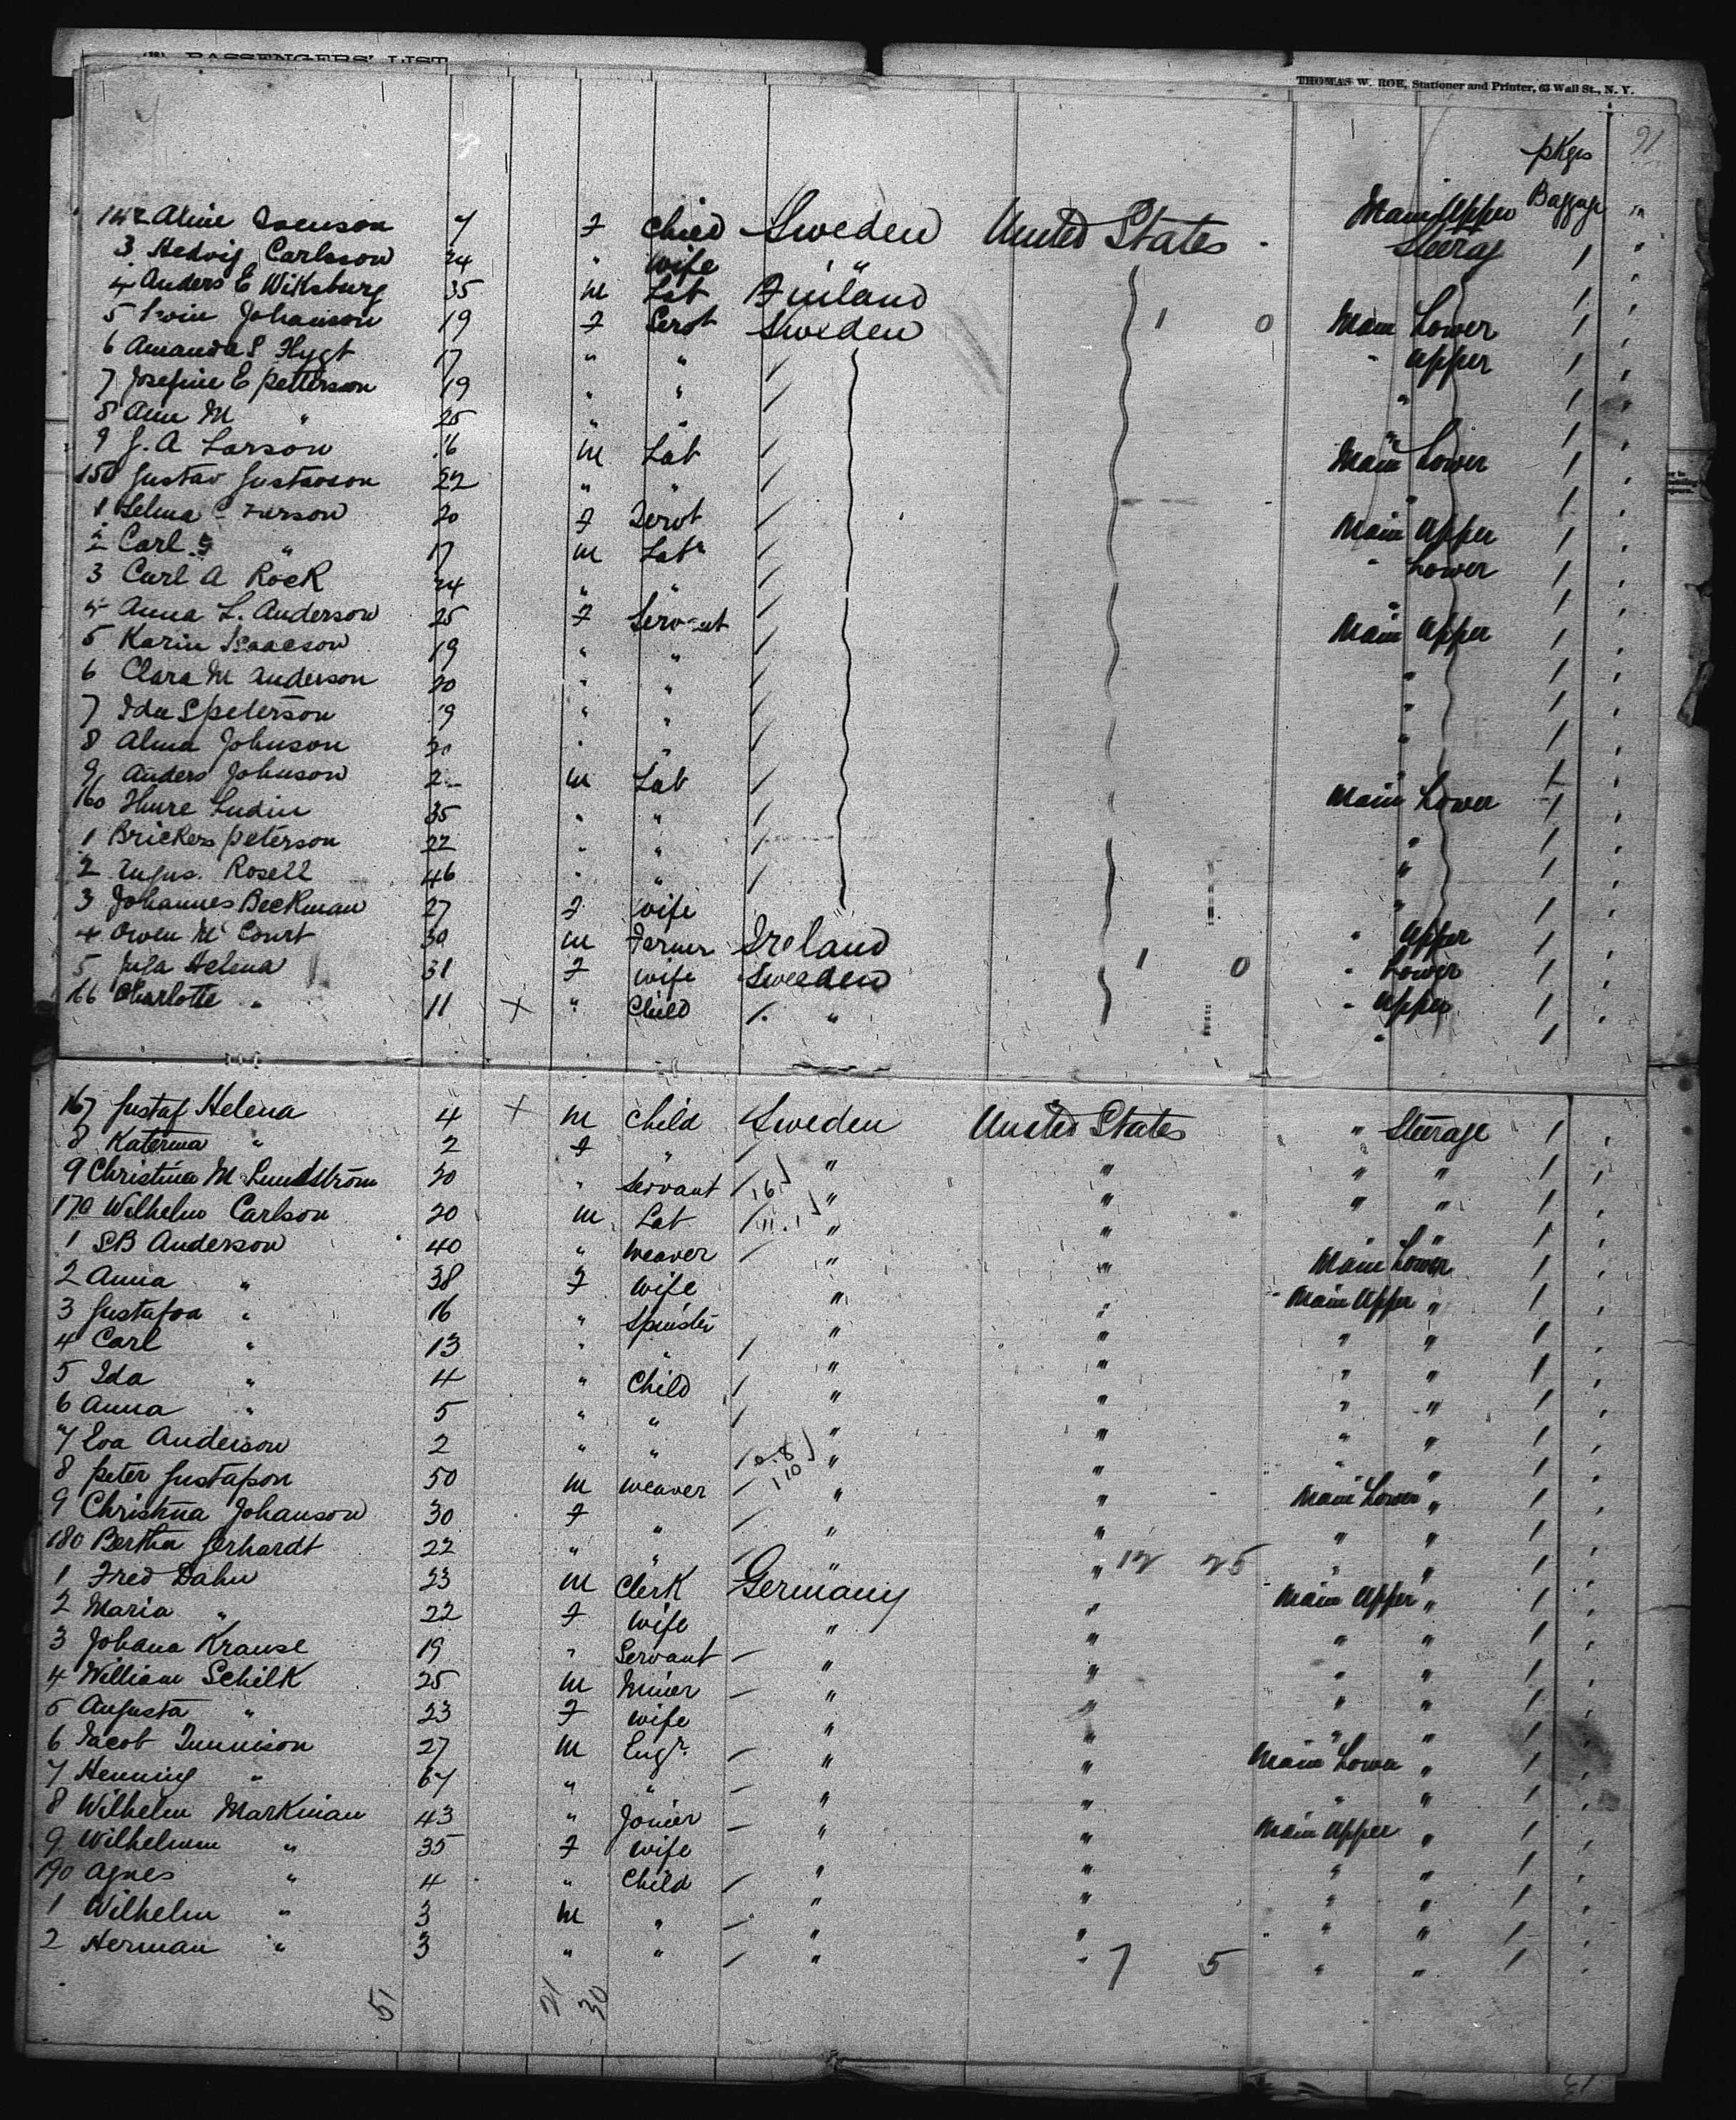 PASSENGERS' LIST
THOMAS W. ROE, Stationer and Printer, 63 Wall St., N. Y.
91
pkgs
Baggage
142 Aline 7 F Child Sweden United States Main Upper Steerag 1
3 Hedvig Carlsson 24 " Wife " 1
4 Anders E Wiksburg 35 M Lab Finland 1 0 Main Lower 1
5 Johanson 19 F Servt Sweden " Upper 1
6 Amanda S Hygt 17 " " / " 1
7 Josefine E Petterson 19 " " / " 1
8 Ann M " 25 " " Main Lower 1
9 J. A Larson 16 M Lab / " 1
150 Gustav Gustavson 22 " " / " 1
1 Selma 20 F Servt / Main Upper 1
2 Carl " 17 M Labr / " Lower 1
3 Carl A Rock 24 " " / " 1
4 Anna L. Anderson 25 F Servant / Main Upper 1
5 Karin Isaacson 19 " " / " 1
6 Clara M Anderson 20 " " / " 1
7 Ida S Peterson 19 " " / " 1
8 Alma Johnson " " " 1
9 Anders Johnson M Lab / Main Lower 1
160 Thure Ludin 35 " " / " 1
1 Brickers Peterson 22 " " / " 1
2 Rosell 46 " " / " 1
3 Johannes Beckman 27 F Wife " Upper 1
4 Owen Mc Court 30 M Farmer Ireland 1 0 " Lower 1
5 Helena 31 F Wife Sweden " Upper 1
166 Charlotte " 11 X " Child / " " 1
167 Gustaf Helena 4 X M Child Sweden United States " Steerage 1
8 Katerina " 2 F " / " " " " 1
9 Christina M Lundstrom 30 " Servant / 16 " " " " 1
170 Wilhelm Carlson 20 M Lab / 11.1 " " " 1
1 S B Anderson 40 " Weaver / " " Main Lower 1
2 Anna " 38 F Wife " " Main Upper " 1
3 Gustafva " 16 " Spinster " " " " 1
4 Carl " 13 " " / " " " " 1
5 Ida " 4 " Child / " " " " 1
6 Anna " 5 " " / " " " " 1
7 Eva Anderson 2 " " / 8 " " " " 1
8 Peter Gustafson 50 M Weaver / 110 " " Main Lower " 1
9 Christina Johanson 30 F " / " " " " 1
180 Bertha Gerhardt 22 " " / " " 12 25 " " 1
1 Fred Dahn 23 M Clerk Germany " Main Upper " 1
2 Maria " 22 F Wife " " " " 1
3 Johana Krause 19 " Servant / " " " " 1
4 William Schilk 25 M Miner / " " " " 1
5 Augusta " 23 F Wife " " " " 1
6 Jacob Tunnison 27 M Engr. / " " Main Lower " 1
7 Henning " 67 " " / " " " " 1
8 Wilhelm Markman 43 " Joiner / " " Main Upper " 1
9 Wilhelmm " 35 F Wife " " " " 1
190 Agnes " 4 " Child / " " " " 1
1 Wilhelm " 3 M " / " " " " 1
2 Herman " 3 " " / " " 7 5 " " 1
51 21 30